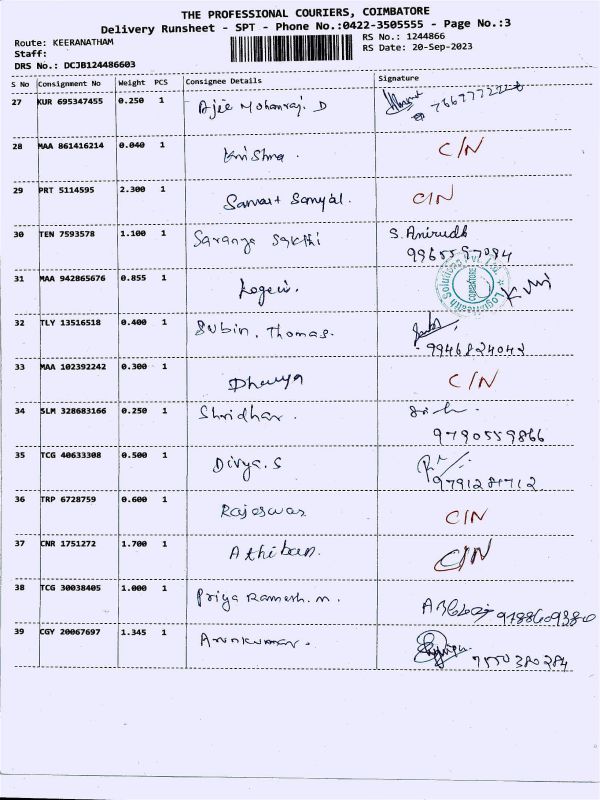 THE PROFESSIONAL COURIERS, COIMBATORE
Delivery Runsheet - SPT - Phone No.:0422-3505555 - Page No.:3
Route: KEERANATHAM
RS No.: 1244866
Staff:
RS Date: 20-Sep-2023
DRS No.: DCJB124486603
S No Consignment No Weight PCS Consignee Details Signature
27 KUR 695347455 0.250 1 Ajie Mohanraj. D
28 MAA 861416214 0.040 1 Krishna. C/N
29 PRT 5114595 2.300 1 C/N
30 TEN 7593578 1.100 1 Saranya Sakthi S. Anirudh
9965597094
31 MAA 942865676 0.855 1
COIMBATORE
32 TLY 13516518 0.400 1 Subin. Thomas.
9946824042
33 MAA 102392242 0.300 1 Dhavya C/N
34 SLM 328683166 0.250 1 Shridhar.
9790559866
35 TCG 40633308 0.500 1 Divya. S
9791281712
36 TRP 6728759 0.600 1 Rajeswar C/N
37 CNR 1751272 1.700 1 Athiban. C/N
38 TCG 30038405 1.000 1 Priya Ramesh. M.
9788609380
39 CGY 20067697 1.345 1 Arunkumar.
7550380284